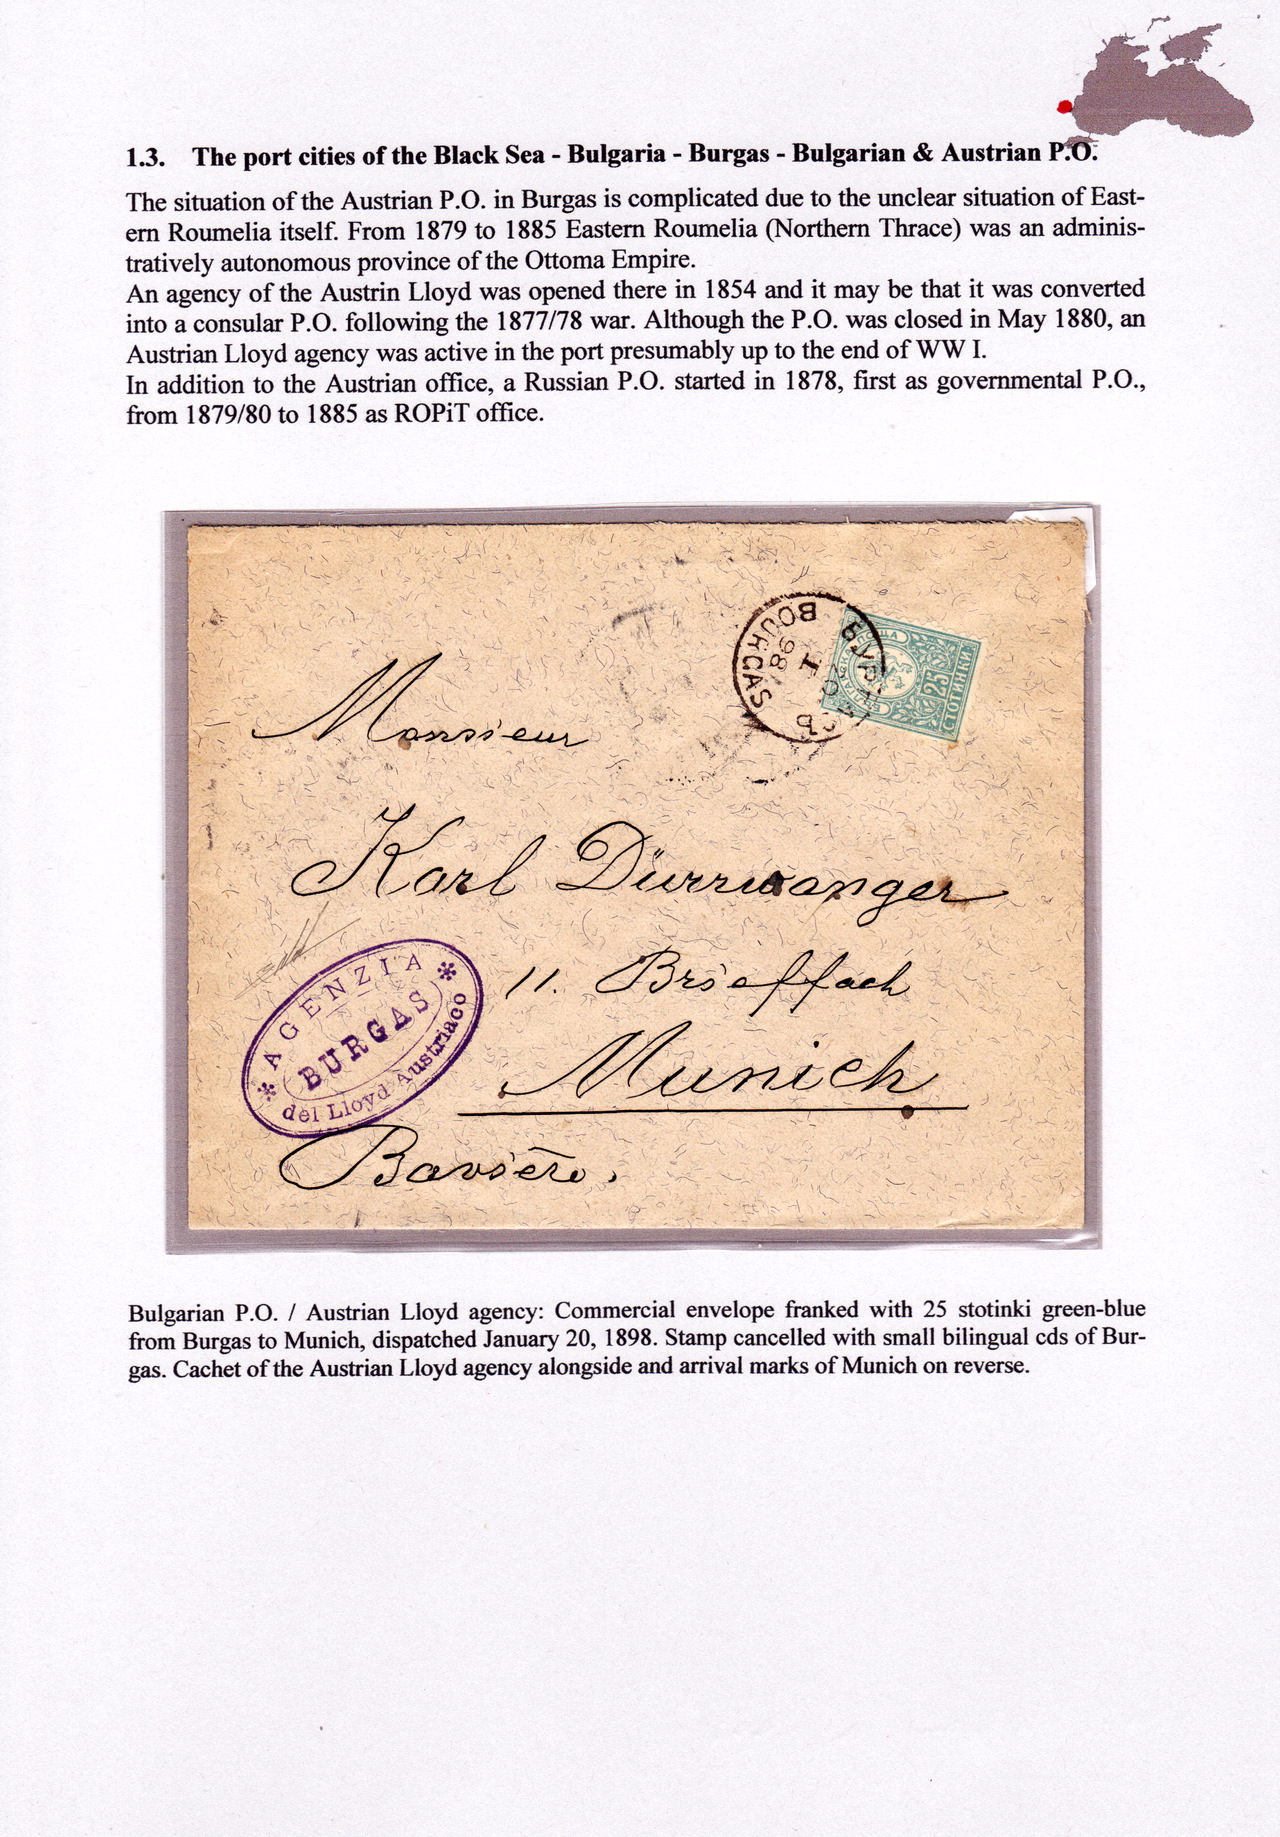 1.3. The port cities of the Black Sea - Bulgaria - Burgas - Bulgarian & Austrian P.O.
The situation of the Austrian P.O. in Burgas is complicated due to the unclear situation of East-
ern Roumelia itself. From 1879 to 1885 Eastern Roumelia (Northern Thrace) was an adminis-
tratively autonomous province of the Ottoma Empire.
An agency of the Austrin Lloyd was opened there in 1854 and it may be that it was converted
into a consular P.O. following the 1877/78 war. Although the P.O. was closed in May 1880, an
Austrian Lloyd agency was active in the port presumably up to the end of WW I.
In addition to the Austrian office, a Russian P.O. started in 1878, first as governmental P.O.,
from 1879/80 to 1885 as ROPiT office.
BOURGAS
98
I
25
СТОТИНКИ
Monsieur
Karl Dürrwanger
11. Brieffach
Munich
Bavière.
AGENZIA
BURGAS
del Lloyd Austriaco
Bulgarian P.O. / Austrian Lloyd agency: Commercial envelope franked with 25 stotinki green-blue
from Burgas to Munich, dispatched January 20, 1898. Stamp cancelled with small bilingual cds of Bur-
gas. Cachet of the Austrian Lloyd agency alongside and arrival marks of Munich on reverse.